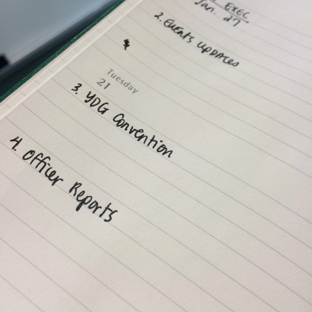 EXEC
Jan. 27
2. Events Updates
Tuesday
21
3. YDG Convention
4. Officer Reports